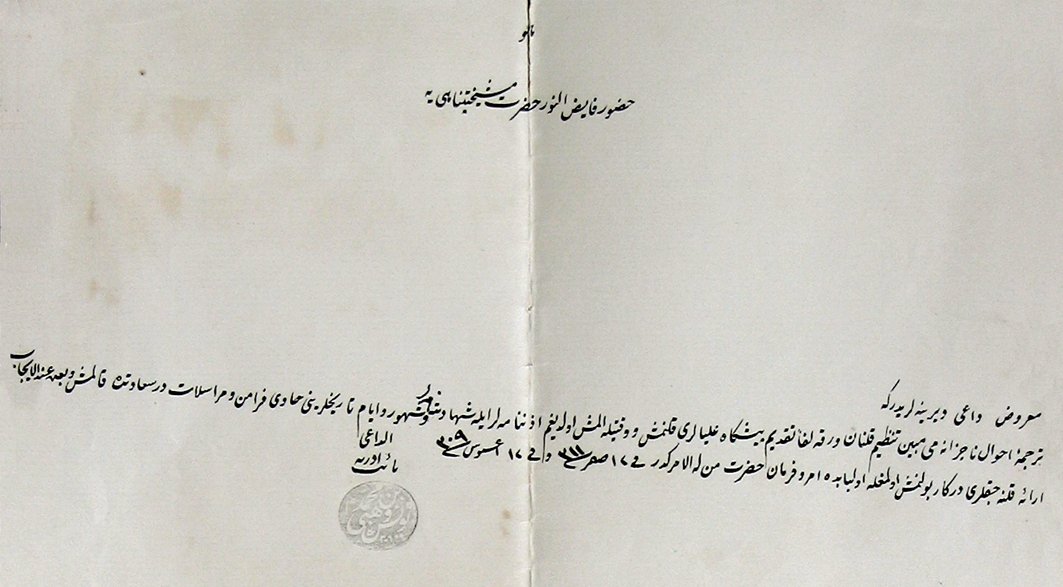 حضور فايض النور حضرت مشيختپناهى يه
معروض داعى ديرينه لريدر كه
ترجمۀ احوال ناجزانه مى مبين تنظيم قلنان ورقه لفا تقديم پيشگاه عليالرى قلنمش و وقتيله المش اولديغم اذننامه لر ايله شهادتنامه لر و شهور و ايام تاريخلرينى حاوى فرامين و مراسلات درسعادتده قالمش و بعده عند الايجاب
ارائه قلنه جقلرى دركار بولنمش اولمغله اولبابده امر و فرمان حضرت من له الامركدر فى ١٧ صفر سنه ٣١١ و فى ١٧ اغستوس سنه ٣٠٩
الداعى
نائب ادرنه